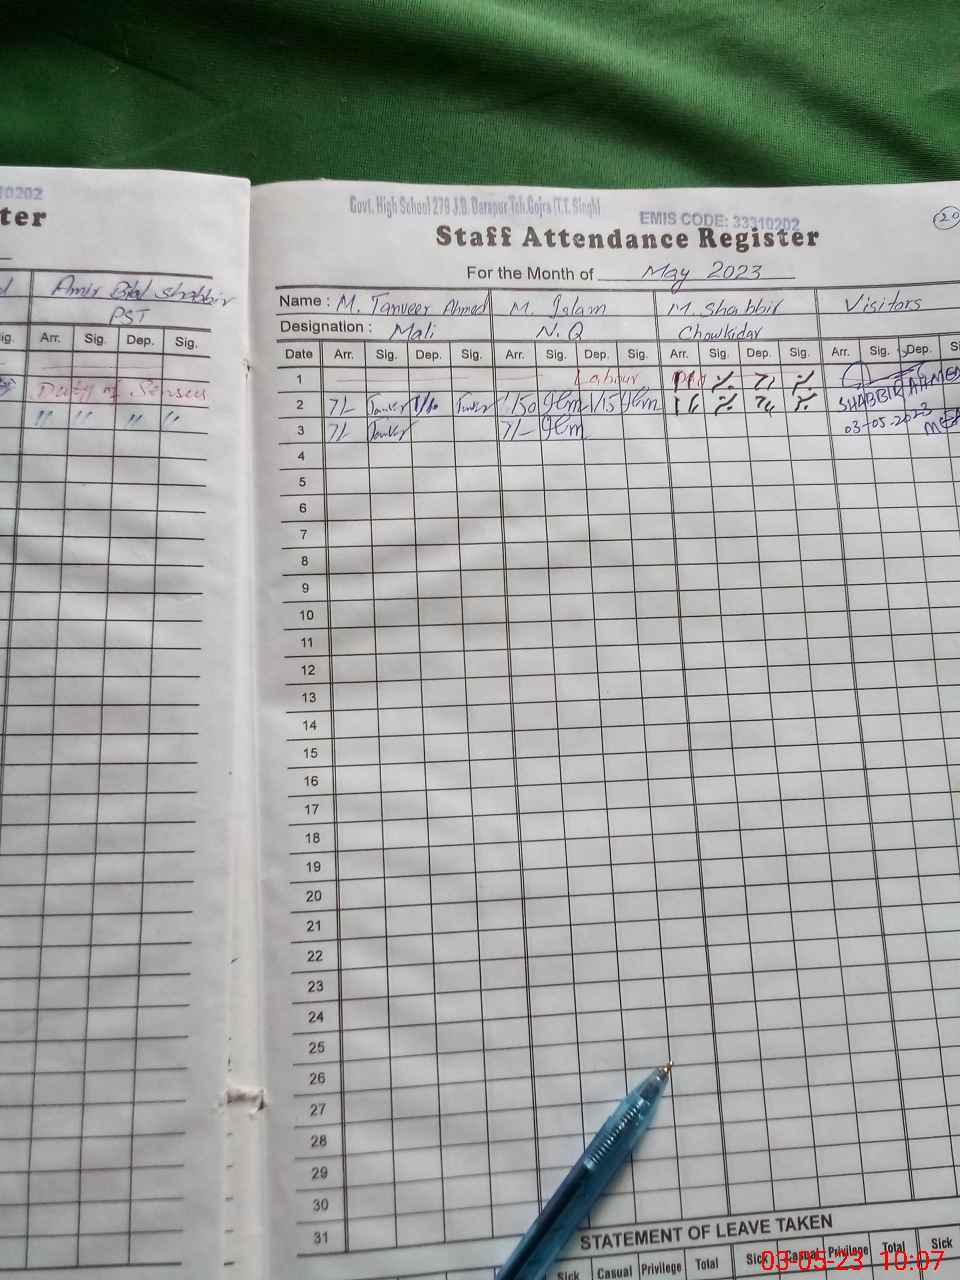 10202
ter
Amir Bilal Shabbir
PST
ig. Arr. Sig. Dep. Sig.
Duty of Sensus
〃 〃 〃 〃
Govt. High School 279 J.B. Darapur Teh. Gojra (T.T. Singh)
EMIS CODE: 33310202
20
Staff Attendance Register
For the Month of May 2023
Name : M. Tanveer Ahmed M. Islam M. Shabbir Visitors
Designation : Mali N.Q Chowkidar
Date Arr. Sig. Dep. Sig. Arr. Sig. Dep. Sig. Arr. Sig. Dep. Sig. Arr. Sig. Dep. Si
1 Labour
2 7/- 1/50 1/15 SHABBIR AHMED
3 7/- 7/- 03-05-2023
4
5
6
7
8
9
10
11
12
13
14
15
16
17
18
19
20
21
22
23
24
25
26
27
28
29
30
31
STATEMENT OF LEAVE TAKEN
Sick Casual Privilege Total Sick Casual Privilege Total Sick
03-05-23 10:07